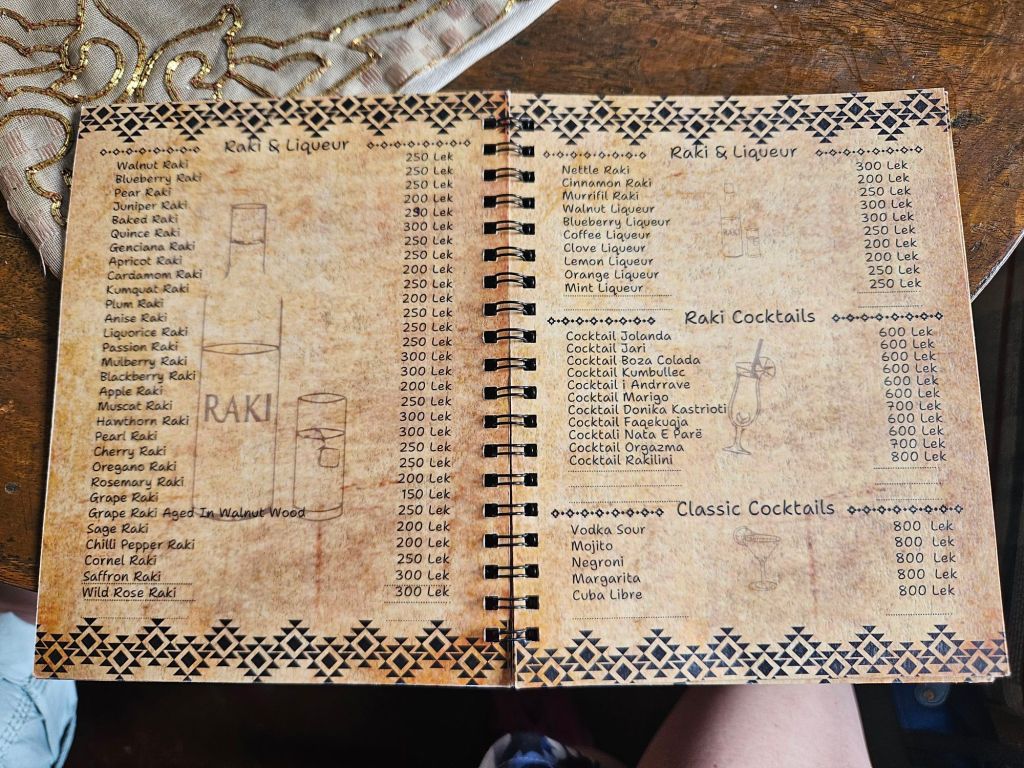 Raki & Liqueur
Walnut Raki 250 Lek
Blueberry Raki 250 Lek
Pear Raki 250 Lek
Juniper Raki 200 Lek
Baked Raki Lek
Quince Raki 300 Lek
Genciana Raki 250 Lek
Apricot Raki 250 Lek
Cardamom Raki 200 Lek
Kumquat Raki 250 Lek
Plum Raki 200 Lek
Anise Raki 250 Lek
Liquorice Raki 250 Lek
Passion Raki 250 Lek
Mulberry Raki 300 Lek
Blackberry Raki 300 Lek
Apple Raki 200 Lek
Muscat Raki 250 Lek
Hawthorn Raki 300 Lek
Pearl Raki 300 Lek
Cherry Raki 250 Lek
Oregano Raki 250 Lek
Rosemary Raki 200 Lek
Grape Raki 150 Lek
Grape Raki Aged In Walnut Wood 250 Lek
Sage Raki 200 Lek
Chilli Pepper Raki 200 Lek
Cornel Raki 250 Lek
Saffron Raki 300 Lek
Wild Rose Raki 300 Lek
RAKI
Raki & Liqueur
Nettle Raki 300 Lek
Cinnamon Raki 200 Lek
Murrifil Raki 250 Lek
Walnut Liqueur 300 Lek
Blueberry Liqueur 300 Lek
Coffee Liqueur 250 Lek
Clove Liqueur 200 Lek
Lemon Liqueur 200 Lek
Orange Liqueur 250 Lek
Mint Liqueur 250 Lek
RAKI
Raki Cocktails
Cocktail Jolanda 600 Lek
Cocktail Jari 600 Lek
Cocktail Boza Colada 600 Lek
Cocktail Kumbullec 600 Lek
Cocktail i Andrrave 600 Lek
Cocktail Marigo 600 Lek
Cocktail Donika Kastrioti 700 Lek
Cocktail Faqekuqja 600 Lek
Cocktali Nata E Parë 600 Lek
Cocktail Orgazma 700 Lek
Cocktail Rakilini 800 Lek
Classic Cocktails
Vodka Sour 800 Lek
Mojito 800 Lek
Negroni 800 Lek
Margarita 800 Lek
Cuba Libre 800 Lek